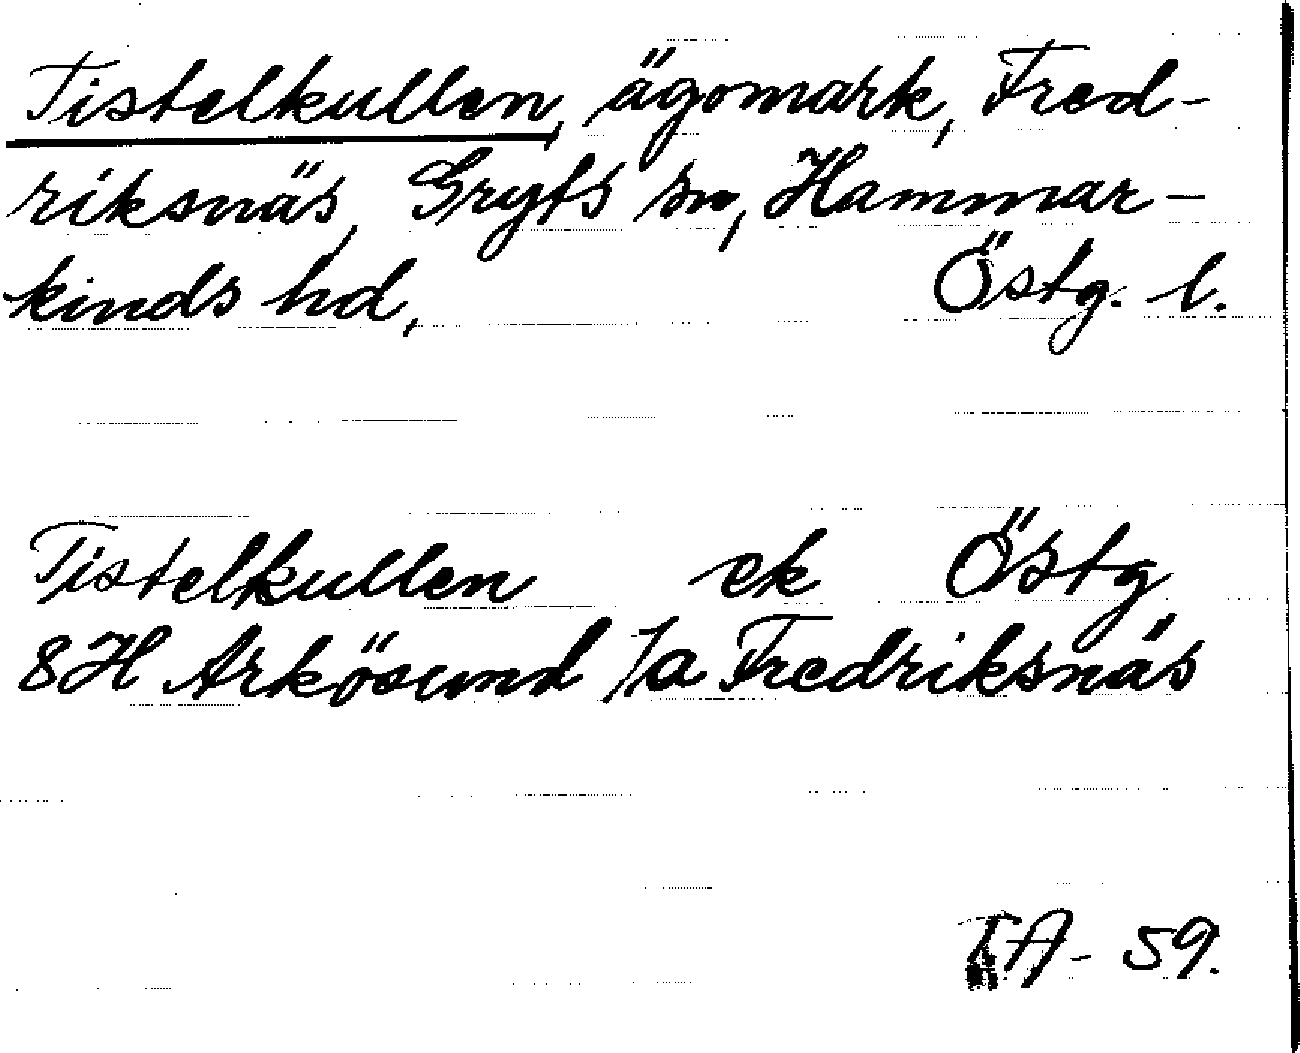 Tistelkullen, ägomark, Fred-
riksnäs, Gryts sn, Hammar-
kinds hd, Östg. l.
Tistelkullen ek Östg
8H Arkösund /a Fredriksnäs
59.